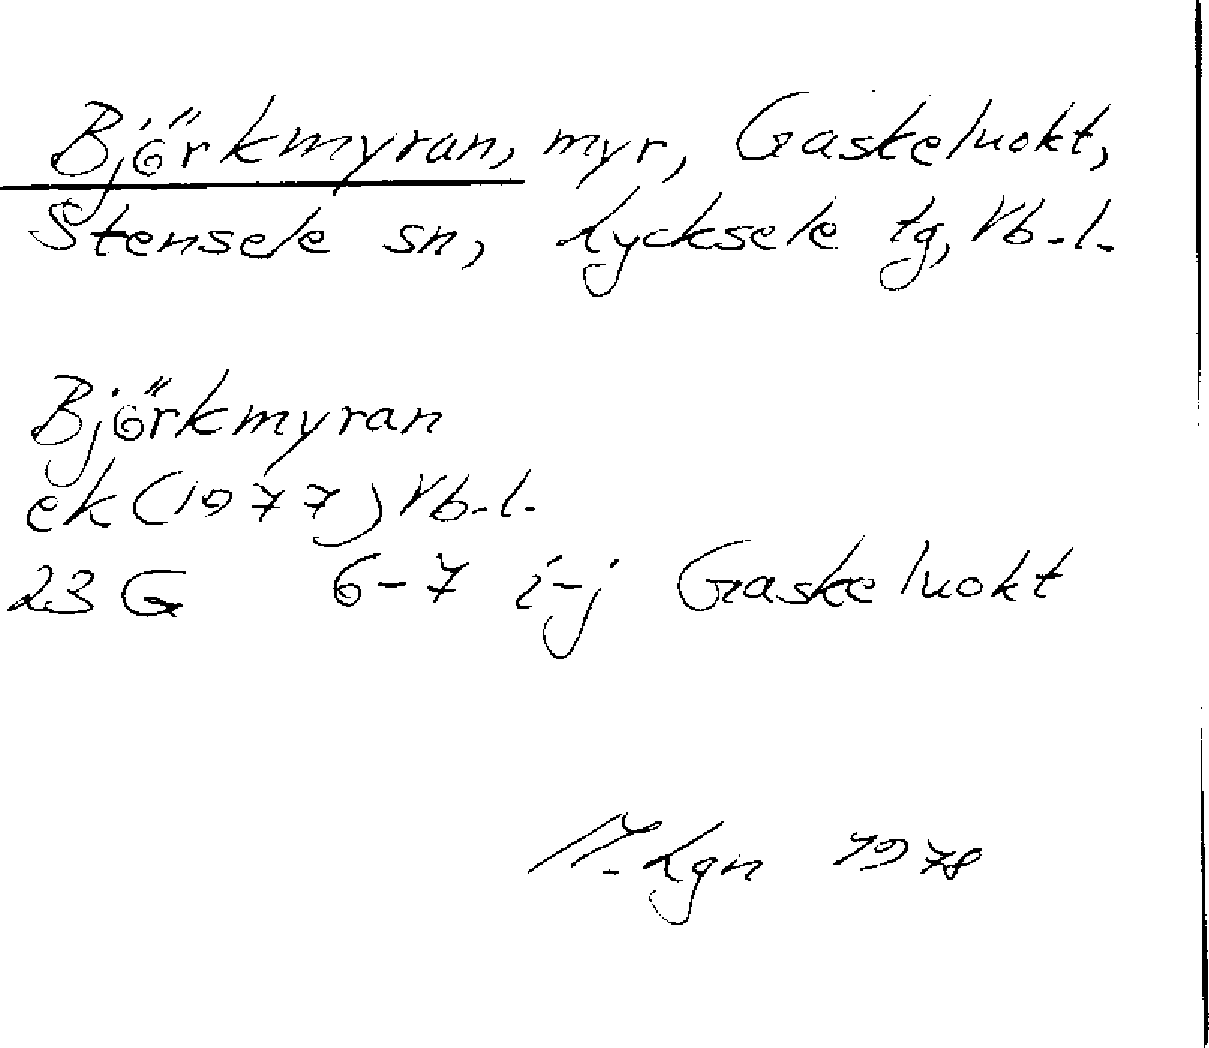 Björkmyran, myr, Gaskeluokt,
Stensele sn, Lycksele lg, Vb.l.
Björkmyran
ek (1977) Vb.l.
23 G 6-7 i-j Gaskeluokt
M. Lgn 1978